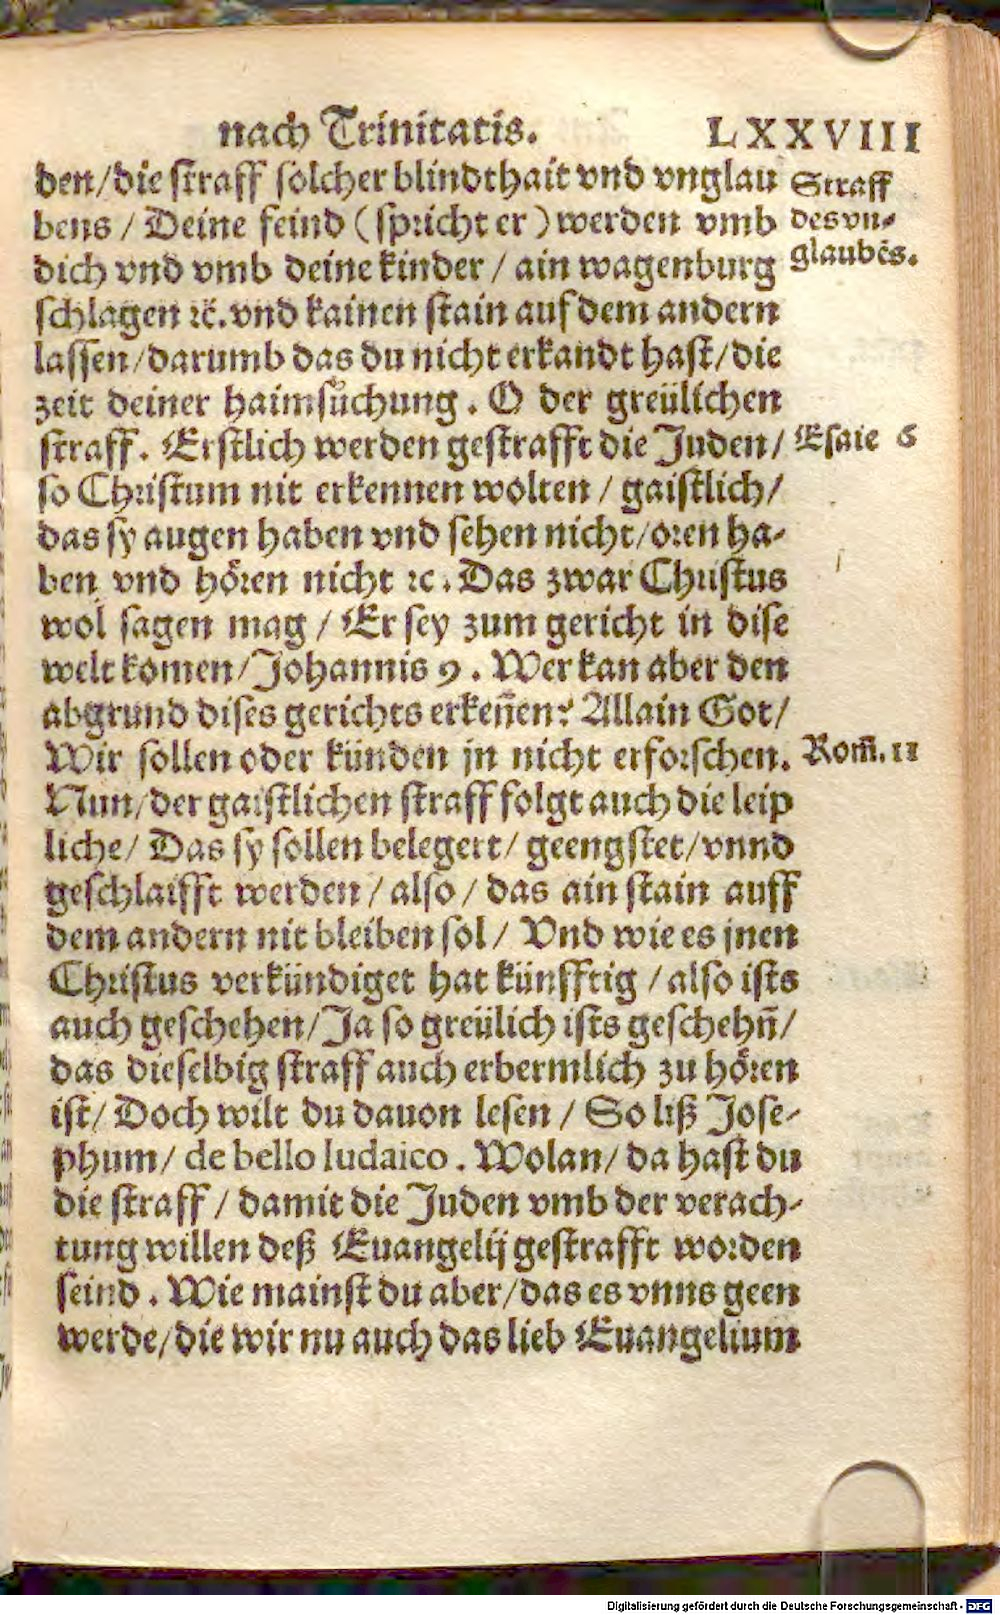 nach Trinitatis. LXXVIII
den/die straff solcher blindthait vnd vnglau
bens / Deine feind (spricht er) werden vmb
dich vnd vmb deine kinder / ain wagenburg
schlagen ꝛc̄. vnd kainen stain auf dem andern
lassen/darumb das du nicht erkandt hast/die
zeit deiner haimsůchung. O der greülichen
straff. Erstlich werden gestrafft die Juden/
so Christum nit erkennen wolten / gaistlich/
das sy augen haben vnd sehen nicht/oren ha-
ben vnd hören nicht ꝛc. Das zwar Christus
wol sagen mag / Er sey zum gericht in dise
welt komen/Johannis 9. Wer kan aber den
abgrund dises gerichts erkeñen? Allain Got/
Wir sollen oder künden jn nicht erforschen.
Nun/der gaistlichen straff folgt auch die leip
liche/ Das sy sollen belegert/ geengstet/vnnd
geschlaifft werden / also / das ain stain auff
dem andern nit bleiben sol/ Vnd wie es jnen
Christus verkündiget hat künfftig / also ists
auch geschehen/Ja so greülich ists geschehñ/
das dieselbig straff auch erbermlich zu hören
ist/ Doch wilt du dauon lesen / So liß Jose-
phum/ de bello Iudaico. Wolan/ da hast du
die straff / damit die Juden vmb der verach-
tung willen deß Euangelij gestrafft worden
seind. Wie mainst du aber/das es vnns geen
werde/die wir nu auch das lieb Euangelium
Straff
des vn-
glaubēs.
Esaie 6
Rom̃. 11
Digitalisierung gefördert durch die Deutsche Forschungsgemeinschaft - DFG